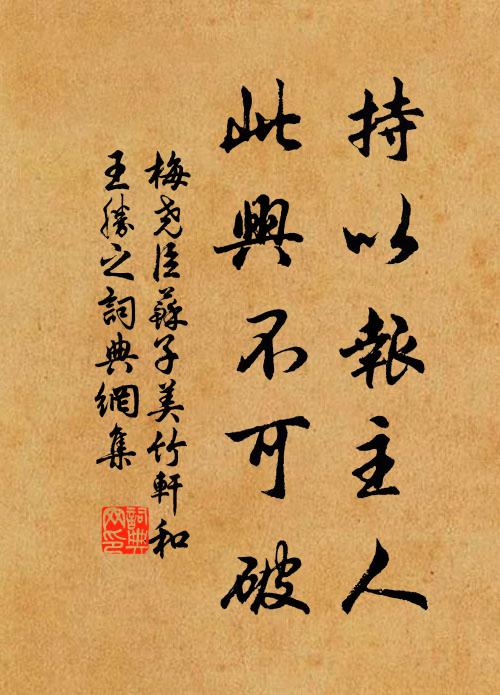 持以報主人
此興不可破
梅堯臣蘇子美竹軒和
王勝之詞典網集
詞典網印